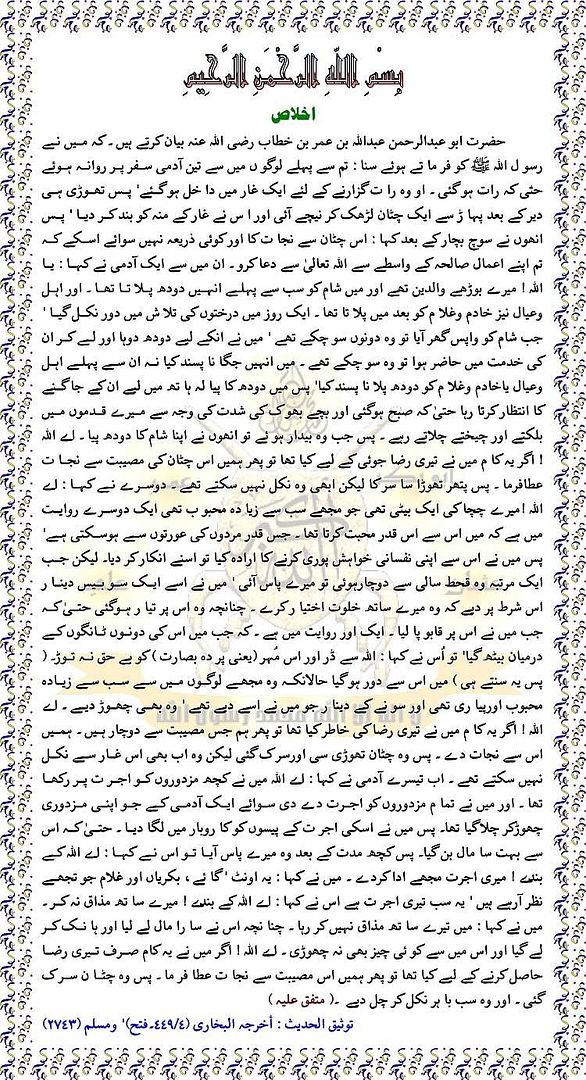 بِسْمِ اللّٰهِ الرَّحْمٰنِ الرَّحِيْمِ
اخلاص
حضرت ابو عبدالرحمن عبداللہ بن عمر بن خطاب رضی اللہ عنہ بیان کرتے ہیں ۔ کہ میں نے
رسول اللہ ﷺ کو فرماتے ہوئے سنا : تم سے پہلے لوگوں میں سے تین آدمی سفر پر روانہ ہوئے
حتیٰ کہ رات ہوگئی ۔ او وہ رات گزارنے کے لئے ایک غار میں داخل ہوگئے' پس تھوڑی ہی
دیر کے بعد پہاڑ سے ایک چٹان لڑھک کر نیچے آئی اور اس نے غار کے منہ کو بند کر دیا ' پس
انھوں نے سوچ بچار کے بعد کہا : اس چٹان سے نجات کا اور کوئی ذریعہ نہیں سوائے اسکے کہ
تم اپنے اعمال صالحہ کے واسطے سے اللہ تعالیٰ سے دعا کرو ۔ ان میں سے ایک آدمی نے کہا : یا
اللہ ! میرے بوڑھے والدین تھے اور میں شام کو سب سے پہلے انہیں دودھ پلاتا تھا ۔ اور اہل
وعیال نیز خادم وغلام کو بعد میں پلاتا تھا ۔ ایک روز میں درختوں کی تلاش میں دور نکل گیا '
جب شام کو واپس گھر آیا تو وہ دونوں سو چکے تھے ' میں نے انکے لیے دودھ دوہا اور لے کر ان
کی خدمت میں حاضر ہوا تو وہ سو چکے تھے ۔ میں انہیں جگا نا پسند کیا نہ ان سے پہلے اہل
وعیال یا خادم وغلام کو دودھ پلانا پسند کیا' پس میں دودھ کا پیالہ ہاتھ میں لیے ان کے جاگنے
کا انتظار کرتا رہا حتیٰ کہ صبح ہوگئی اور بچے بھوک کی شدت کی وجہ سے میرے قدموں میں
بلکتے اور چیختے چلاتے رہے ۔ پس جب وہ بیدار ہوئے تو انھوں نے اپنا شام کا دودھ پیا ۔ اے اللہ
! اگر یہ کام میں نے تیری رضا جوئی کے لیے کیا تھا تو پھر ہمیں اس چٹان کی مصیبت سے نجات
عطا فرما ۔ پس پتھر تھوڑا سا سرکا لیکن ابھی وہ نکل نہیں سکتے تھے ۔ دوسرے نے کہا : اے
اللہ ! میرے چچا کی ایک بیٹی تھی جو مجھے سب سے زیادہ محبوب تھی ایک دوسرے روایت
میں ہے کہ میں اس سے اس قدر محبت کرتا تھا ۔ جس قدر مردوں کی عورتوں سے ہوسکتی ہے'
پس میں نے اس سے اپنی نفسانی خواہش پوری کرنے کا ارادہ کیا تو اسنے انکار کر دیا۔ لیکن جب
ایک مرتبہ وہ قحط سالی سے دوچار ہوئی تو میرے پاس آئی ' میں نے اسے ایک سو بیس دینار
اس شرط پر دیے کہ وہ میرے ساتھ خلوت اختیار کرے ۔ چنانچہ وہ اس پر تیار ہوگئی حتیٰ کہ
جب میں نے اس پر قابو پا لیا ۔ ایک اور روایت میں ہے ۔ کہ جب میں اس کی دونوں ٹانگوں کے
درمیان بیٹھ گیا' تو اُس نے کہا : اللہ سے ڈر اور اس مُہر (یعنی پردہ بصارت) کو بے حق نہ توڑ۔ (
پس یہ سنتے ہی ) میں اس سے دور ہوگیا حالانکہ وہ مجھے لوگوں میں سے سب سے زیادہ
محبوب اور پیاری تھی اور سونے کے دینار جو میں نے اسے دیے تھے ' وہ بھی چھوڑ دیے ۔ اے
اللہ ! اگر یہ کام میں نے تیری رضا کی خاطر کیا تھا تو پھر ہم جس مصیبت سے دوچار ہیں ۔ ہمیں
اس سے نجات دے ۔ پس وہ چٹان تھوڑی سی اور سرک گئی لیکن وہ اب بھی اس غار سے نکل
نہیں سکتے تھے ۔ اب تیسرے آدمی نے کہا : اے اللہ میں نے کچھ مزدوروں کو اجرت پر رکھا
تھا ۔ اور میں نے تمام مزدوروں کو اجرت دے دی سوائے ایک آدمی کے جو اپنی مزدوری
چھوڑ کر چلا گیا تھا۔ پس میں نے اسکی اجرت کے پیسوں کو کاروبار میں لگا دیا ۔ حتیٰ کہ اس
سے بہت سا مال بن گیا۔ پس کچھ مدت کے بعد وہ میرے پاس آیا تو اس نے کہا : اے اللہ کے
بندے ! میری اجرت مجھے ادا کردے ۔ میں نے کہا : یہ اونٹ ' گائے ، بکریاں اور غلام جو تجھے
نظر آرہے ہیں ' یہ سب تیری اجرت ہے اس نے کہا : اے اللہ کے بندے ! میرے ساتھ مذاق نہ کر ۔
میں نے کہا : میں تیرے ساتھ مذاق نہیں کر رہا ۔ چنانچہ اس نے سارا مال لے لیا اور ہانک کر
لے گیا اور اس میں سے کوئی چیز بھی نہ چھوڑی ۔ اے اللہ ! اگر میں نے یہ کام صرف تیری رضا
حاصل کرنے کے لیے کیا تھا تو پھر ہمیں اس مصیبت سے نجات عطا فرما ۔ پس وہ چٹان سرک
گئی ۔ اور وہ سب باہر نکل کر چل دیے ۔ ( متفق علیہ )
توثیق الحدیث : أخرجه البخاری (۴/۴۴۹۔فتح)' ومسلم (۲۷۴۳)